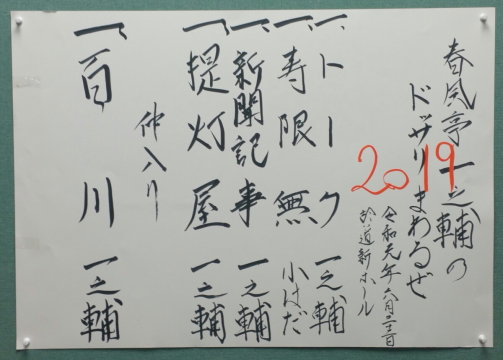 春風亭一之輔の
ドッサリまわるぜ
2019
令和元年六月
於道新ホール
一、トーク 一之輔
一、寿限無 小はだ
一、新聞記事 一之輔
一、提灯屋 一之輔
仲入り
一、百川 一之輔